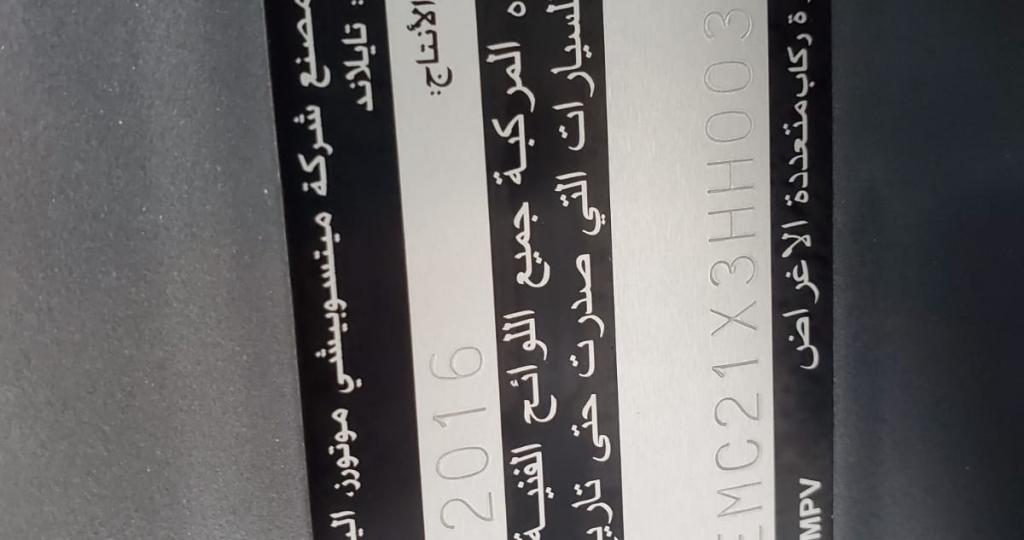 مصنع شركة ميتسوبيشي موتورز
: تايلاند
الأنتاج:
2016
المركبة جميع اللوائح الفنية
التي صدرت حتى
MC21X3HH003
متعددة الاغراض
MPV